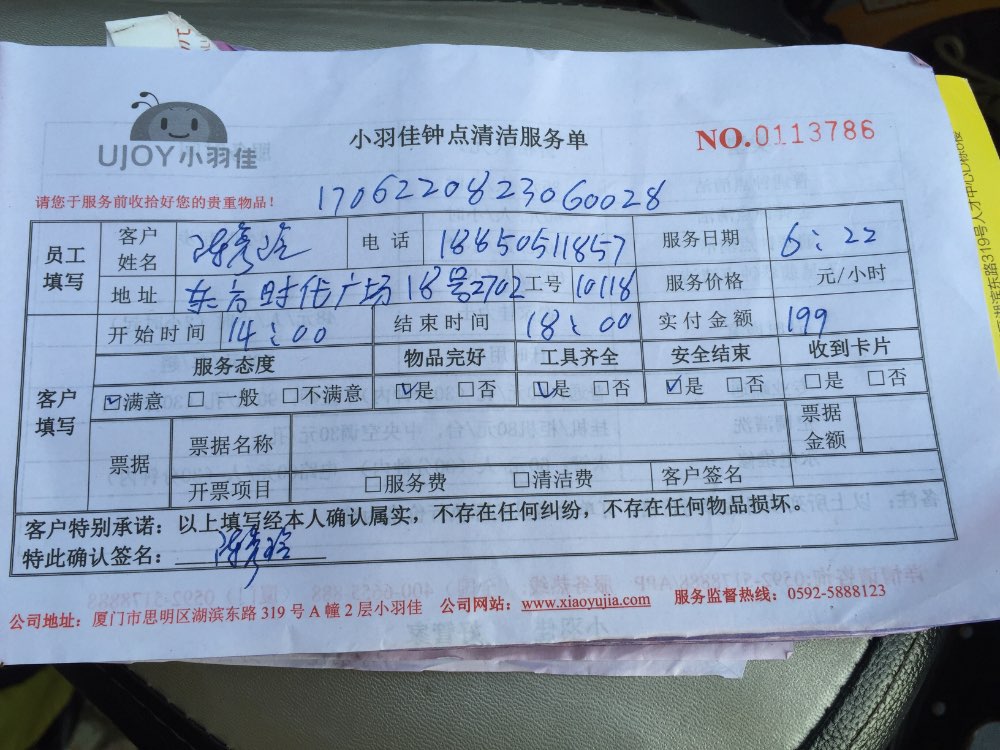 UJOY小羽佳
小羽佳钟点清洁服务单
NO.0113786
请您于服务前收拾好您的贵重物品!
1706220823060028
员工填写 客户姓名 电话 18650511857 服务日期 6:22
地址 东方时代广场18号2702 工号 10118 服务价格 元/小时
客户填写 开始时间 14:00 结束时间 18:00 实付金额 199
服务态度 物品完好 工具齐全 安全结束 收到卡片
☑满意 □一般 □不满意 ☑是 □否 ☑是 □否 ☑是 □否 □是 □否
票据 票据名称 票据金额
开票项目 □服务费 □清洁费 客户签名
客户特别承诺:以上填写经本人确认属实,不存在任何纠纷,不存在任何物品损坏。
特此确认签名:
公司地址:厦门市思明区湖滨东路319号A幢2层小羽佳 公司网站:www.xiaoyujia.com 服务监督热线:0592-5888123